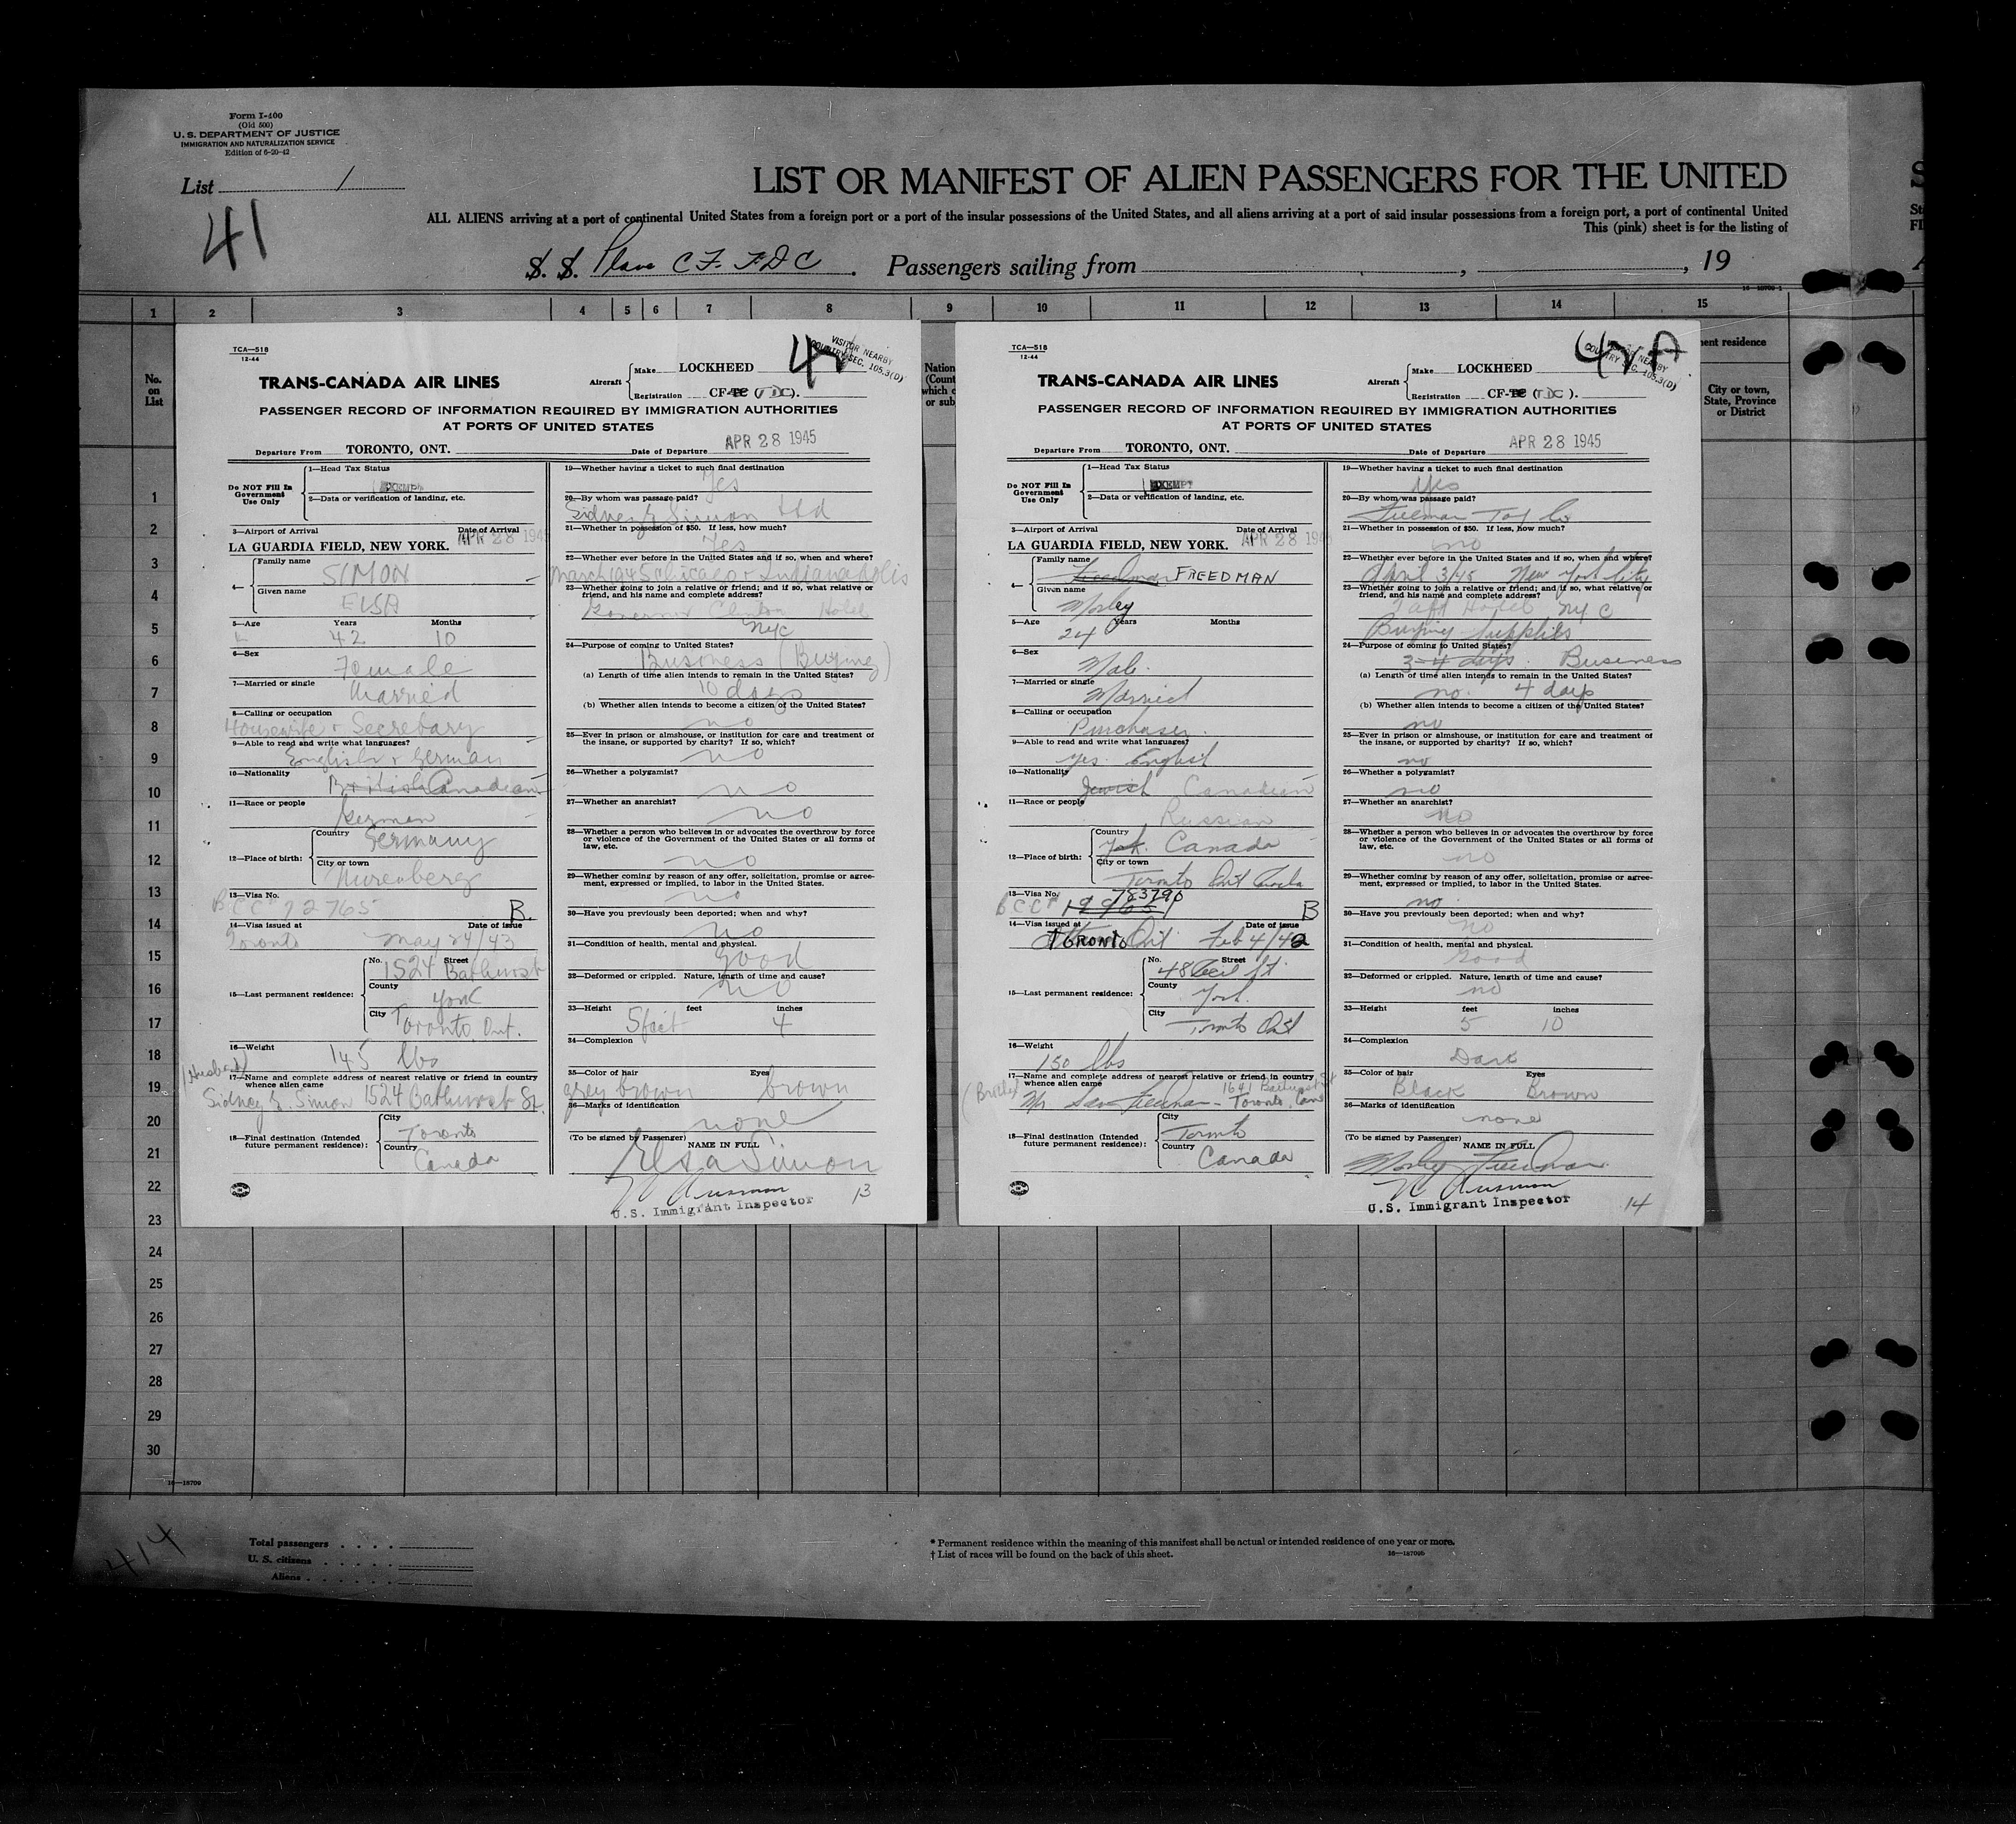 Form I-400
(Old 500)
U. S. DEPARTMENT OF JUSTICE
IMMIGRATION AND NATURALIZATION SERVICE
Edition of 6-20-42
List 1
41
LIST OR MANIFEST OF ALIEN PASSENGERS FOR THE UNITED
ALL ALIENS arriving at a port of continental United States from a foreign port or a port of the insular possessions of the United States, and all aliens arriving at a port of said insular possessions from a foreign port, a port of continental United
This (pink) sheet is for the listing of
S. S. Plane CF-TDC. Passengers sailing from , , 19
1 2 3 4 5 6 7 8 9 10 11 12 13 14 15
No. on List
TCA—518
12-44
TRANS-CANADA AIR LINES
Aircraft Make LOCKHEED
Registration CF-TC (TDC).
VISITOR NEARBY
COUNTRY SEC. 105.3(D)
PASSENGER RECORD OF INFORMATION REQUIRED BY IMMIGRATION AUTHORITIES
AT PORTS OF UNITED STATES
Departure From TORONTO, ONT. Date of Departure APR 28 1945
Do NOT Fill In Government Use Only
1—Head Tax Status
EXEMPT
2—Data or verification of landing, etc.
3—Airport of Arrival Date of Arrival
LA GUARDIA FIELD, NEW YORK. APR 28 194
4— Family name SIMON
Given name ELSA
5—Age Years 42 Months 10
6—Sex Female
7—Married or single Married
8—Calling or occupation
Housewife + Secretary
9—Able to read and write what languages?
English + German
10—Nationality British Canadian
11—Race or people German
12—Place of birth: Country Germany
City or town Nurenberg
13—Visa No.
BCC# 72765 B.
14—Visa issued at Date of issue
Toronto May 24/43
15—Last permanent residence: No. Street 1524 Bathurst
County York
City Toronto, Ont.
16—Weight 145 lbs
(Husband)
17—Name and complete address of nearest relative or friend in country whence alien came
Sidney G. Simon 1524 Bathurst St.
18—Final destination (Intended future permanent residence): City Toronto
Country Canada
19—Whether having a ticket to such final destination
Yes
20—By whom was passage paid?
Sidney G Simon Ltd
21—Whether in possession of $50. If less, how much?
Yes
22—Whether ever before in the United States and if so, when and where?
March 1945 Chicago + Indianapolis
23—Whether going to join a relative or friend; and if so, what relative or friend, and his name and complete address?
Governor Clinton Hotel
NYC
24—Purpose of coming to United States?
Business (Buying)
(a) Length of time alien intends to remain in the United States?
10 days
(b) Whether alien intends to become a citizen of the United States?
no
25—Ever in prison or almshouse, or institution for care and treatment of the insane, or supported by charity? If so, which?
no
26—Whether a polygamist? no
27—Whether an anarchist? no
28—Whether a person who believes in or advocates the overthrow by force or violence of the Government of the United States or all forms of law, etc.
no
29—Whether coming by reason of any offer, solicitation, promise or agreement, expressed or implied, to labor in the United States.
no
30—Have you previously been deported; when and why?
no
31—Condition of health, mental and physical.
Good
32—Deformed or crippled. Nature, length of time and cause?
no
33—Height 5 feet 4 inches
34—Complexion
35—Color of hair grey brown Eyes brown
36—Marks of identification none
(To be signed by Passenger) NAME IN FULL
Elsa Simon
U.S. Immigrant Inspector
13
TCA—518
12-44
TRANS-CANADA AIR LINES
Aircraft Make LOCKHEED
Registration CF-TC (TDC).
COUNTRY SEC. 105.3(D)
PASSENGER RECORD OF INFORMATION REQUIRED BY IMMIGRATION AUTHORITIES
AT PORTS OF UNITED STATES
Departure From TORONTO, ONT. Date of Departure APR 28 1945
Do NOT Fill In Government Use Only
1—Head Tax Status
EXEMPT
2—Data or verification of landing, etc.
3—Airport of Arrival Date of Arrival
LA GUARDIA FIELD, NEW YORK. APR 28 194
4— Family name Freedman FREEDMAN
Given name Morley
5—Age 24 Years Months
6—Sex Male.
7—Married or single Married
8—Calling or occupation
Purchaser.
9—Able to read and write what languages?
yes English
10—Nationality Jewish Canadian
11—Race or people Russian
12—Place of birth: Country York. Canada
City or town Toronto Ont Canada
13—Visa No. 783790
BCC# B
14—Visa issued at Date of issue
TORONTO Ont. Feb 4/42
15—Last permanent residence: No. Street 48 Cecil St
County York.
City Toronto Ont
16—Weight 150 lbs
(Brother)
17—Name and complete address of nearest relative or friend in country whence alien came
1641 Bathurst St
Toronto, Can
18—Final destination (Intended future permanent residence): City Toronto
Country Canada
19—Whether having a ticket to such final destination
Yes
20—By whom was passage paid?
21—Whether in possession of $50. If less, how much?
no
22—Whether ever before in the United States and if so, when and where?
April 3/45 New York City
23—Whether going to join a relative or friend; and if so, what relative or friend, and his name and complete address?
Taft Hotel NYC
Buying Supplies
24—Purpose of coming to United States?
3-4 days. Business
(a) Length of time alien intends to remain in the United States?
no. 4 days
(b) Whether alien intends to become a citizen of the United States?
no
25—Ever in prison or almshouse, or institution for care and treatment of the insane, or supported by charity? If so, which?
no
26—Whether a polygamist? no
27—Whether an anarchist? no
28—Whether a person who believes in or advocates the overthrow by force or violence of the Government of the United States or all forms of law, etc.
no
29—Whether coming by reason of any offer, solicitation, promise or agreement, expressed or implied, to labor in the United States.
no.
30—Have you previously been deported; when and why?
no
31—Condition of health, mental and physical.
Good
32—Deformed or crippled. Nature, length of time and cause?
no
33—Height feet 5 inches 10
34—Complexion Dark
35—Color of hair Black Eyes Brown
36—Marks of identification none
(To be signed by Passenger) NAME IN FULL
Morley Freedman
U.S. Immigrant Inspector
14
ent residence
City or town, State, Province or District
1
2
3
4
5
6
7
8
9
10
11
12
13
14
15
16
17
18
19
20
21
22
23
24
25
26
27
28
29
30
16—18709
414
Total passengers
U. S. citizens
Aliens
* Permanent residence within the meaning of this manifest shall be actual or intended residence of one year or more.
† List of races will be found on the back of this sheet.
16—18709b